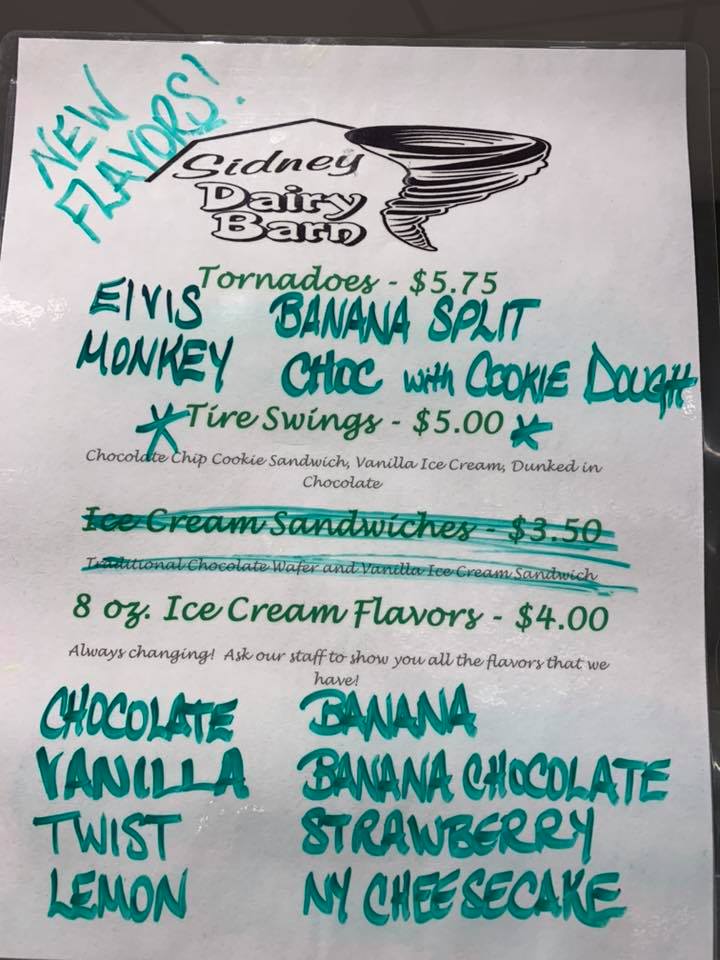 NEW
FLAVORS!
Sidney
Dairy
Barn
Tornadoes - $5.75
ElVIS BANANA SPLIT
MONKEY CHOC with COOKIE DOUGH
*Tire Swings - $5.00*
Chocolate Chip Cookie Sandwich, Vanilla Ice Cream, Dunked in
Chocolate
Ice Cream Sandwiches - $3.50
Traditional Chocolate Wafer and Vanilla Ice Cream Sandwich
8 oz. Ice Cream Flavors - $4.00
Always changing! Ask our staff to show you all the flavors that we
have!
CHOCOLATE BANANA
VANILLA BANANA CHOCOLATE
TWIST STRAWBERRY
LEMON NY CHEESECAKE